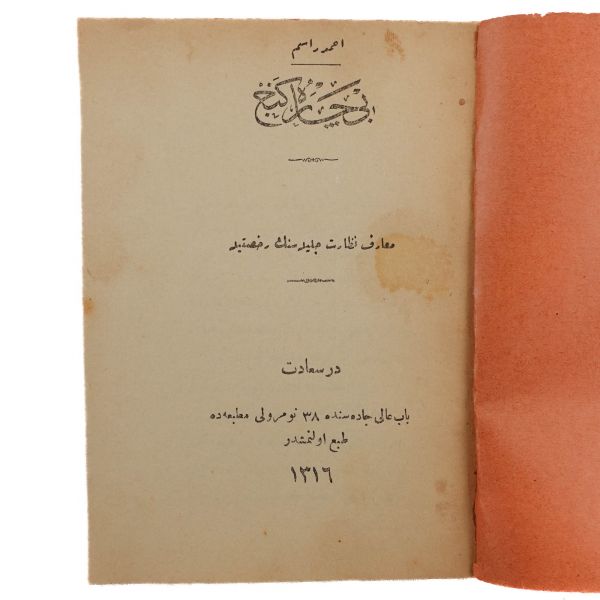 احمد راسم
بی‌چاره كنج
معارف نظارت جلیله‌سنك رخصتیله
در سعادت
باب عالی جاده‌سنده ٣٨ نومرولی مطبعه‌ده
طبع اولنمشدر
١٣١٦